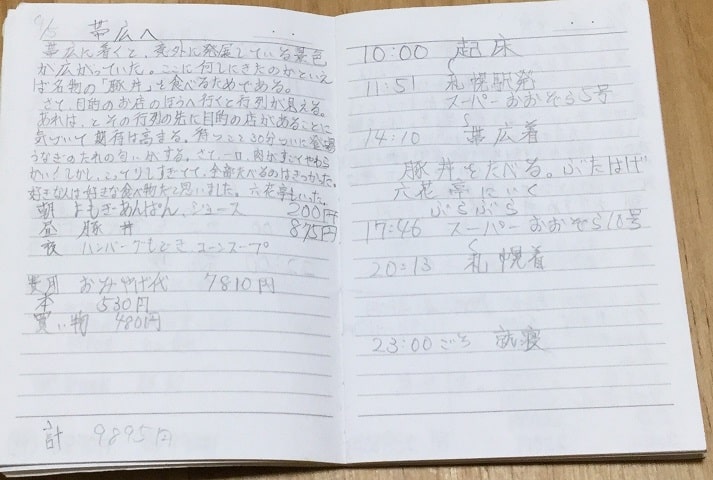 9/5 帯広へ
帯広に着くと、意外に発展している景色
が広がっていた。ここに何しにきたのかといえ
ば名物の「豚丼」を食べるためである。
さて、目的のお店のほうへ行くと行列が見える。
あれは、とその行列の先に目的の店があることに
気づいて期待は高まる。待つこと30分ついに登場
うなぎのたれの匂いがする。さて、一口、肉がすごくやわら
かい。しかし、こってりしすぎてて、全部食べるのはきつかった。
好きな人は好きな食べ物だと思いました。六花亭もいった。
朝 よもぎあんぱん、ジュース 200円
昼 豚丼 875円
夜 ハンバーグもどき、コーンスープ
費用 おみやげ代 7810円
本 530円
買い物 480円
計 9895円
10:00 起床
11:51 札幌駅発
スーパーおおぞら5号
14:10 帯広着
豚丼をたべる。ぶたはげ
六花亭にいく
ぶらぶら
17:46 スーパーおおぞら10号
20:13 札幌着
23:00ごろ 就寝